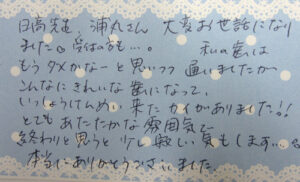 日高先生、浦丸さん 大変お世話になり
ました。受付の方も…。 私の歯は
もうダメかなーと思いつつ 通いましたが
こんなにきれいな歯になって、
いっしょうけんめい来たカイがありました!!
とてもあたたかな雰囲気で
終わりと思うと少し寂しい気もします…。
本当にありがとうございました。